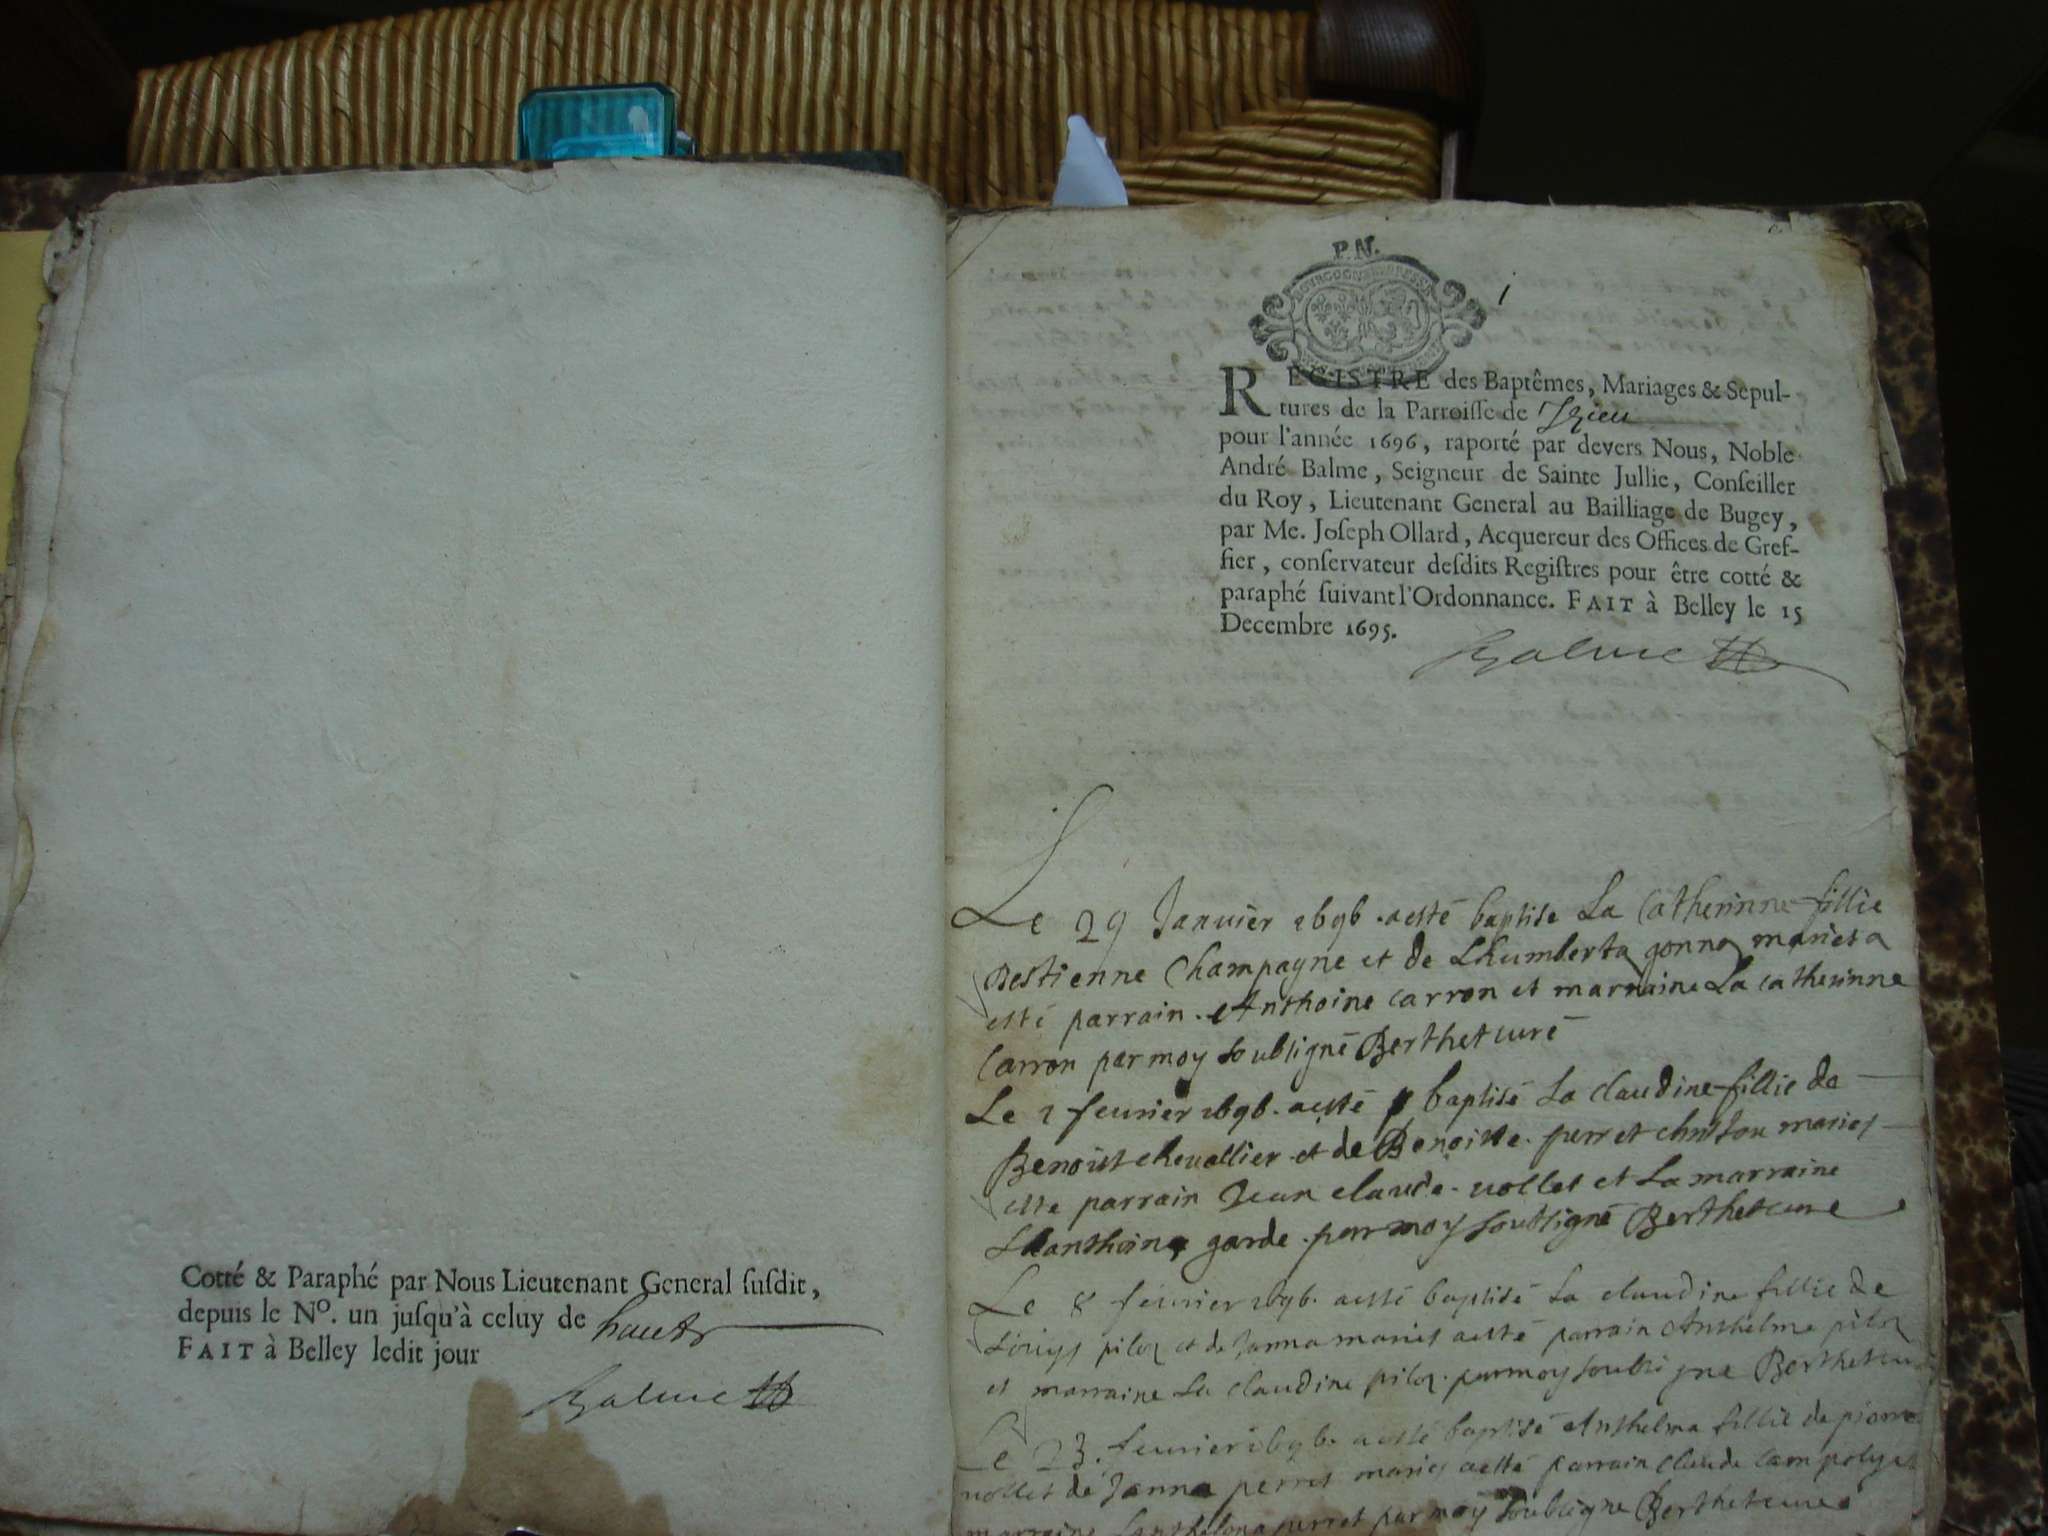 Cotté & Paraphé par Nous Lieutenant General ſuſdit,
depuis le Nº. un juſqu'à celuy de
FAIT à Belley ledit jour
Balme
P.N.
1
REGISTRE des Baptêmes, Mariages & Sepul-
tures de la Parroiſſe de Izieu
pour l'année 1696, raporté par devers Nous, Noble
André Balme, Seigneur de Sainte Jullie, Conſeiller
du Roy, Lieutenant General au Bailliage de Bugey,
par Me. Joſeph Ollard, Acquereur des Offices de Gref-
fier, conſervateur deſdits Regiſtres pour être cotté &
paraphé ſuivant l'Ordonnance. FAIT à Belley le 15
Decembre 1695.
Balme
Le 29 Janvier 1696. a esté baptise La Catherinne fillie
Destienne Champagne et de Lhumberta gonna maries a
esté parrain. Anthoine carron et marraine La catherinne
Carron par moy soubsigné Berthet curé
Le fevrier 1696. a esté baptisé La claudine fillie de
Benoist chevallier et de Benoiste. perret maries
este parrain Jean claude. vollet et La marraine
garde. par moy soubsigné Berthet curé
Le 8 fevrier 1696. a esté baptisé La claudine fillie de
et de Janna maries a esté parrain Anthelme
et marraine La claudine par moy soubsigne Berthet
Le 23. fevrier 1696. a esté baptisé Anthelma fillie de
vollet de Janna perret maries a esté parrain claude
marraine perret par moy soubsigne Berthet curé